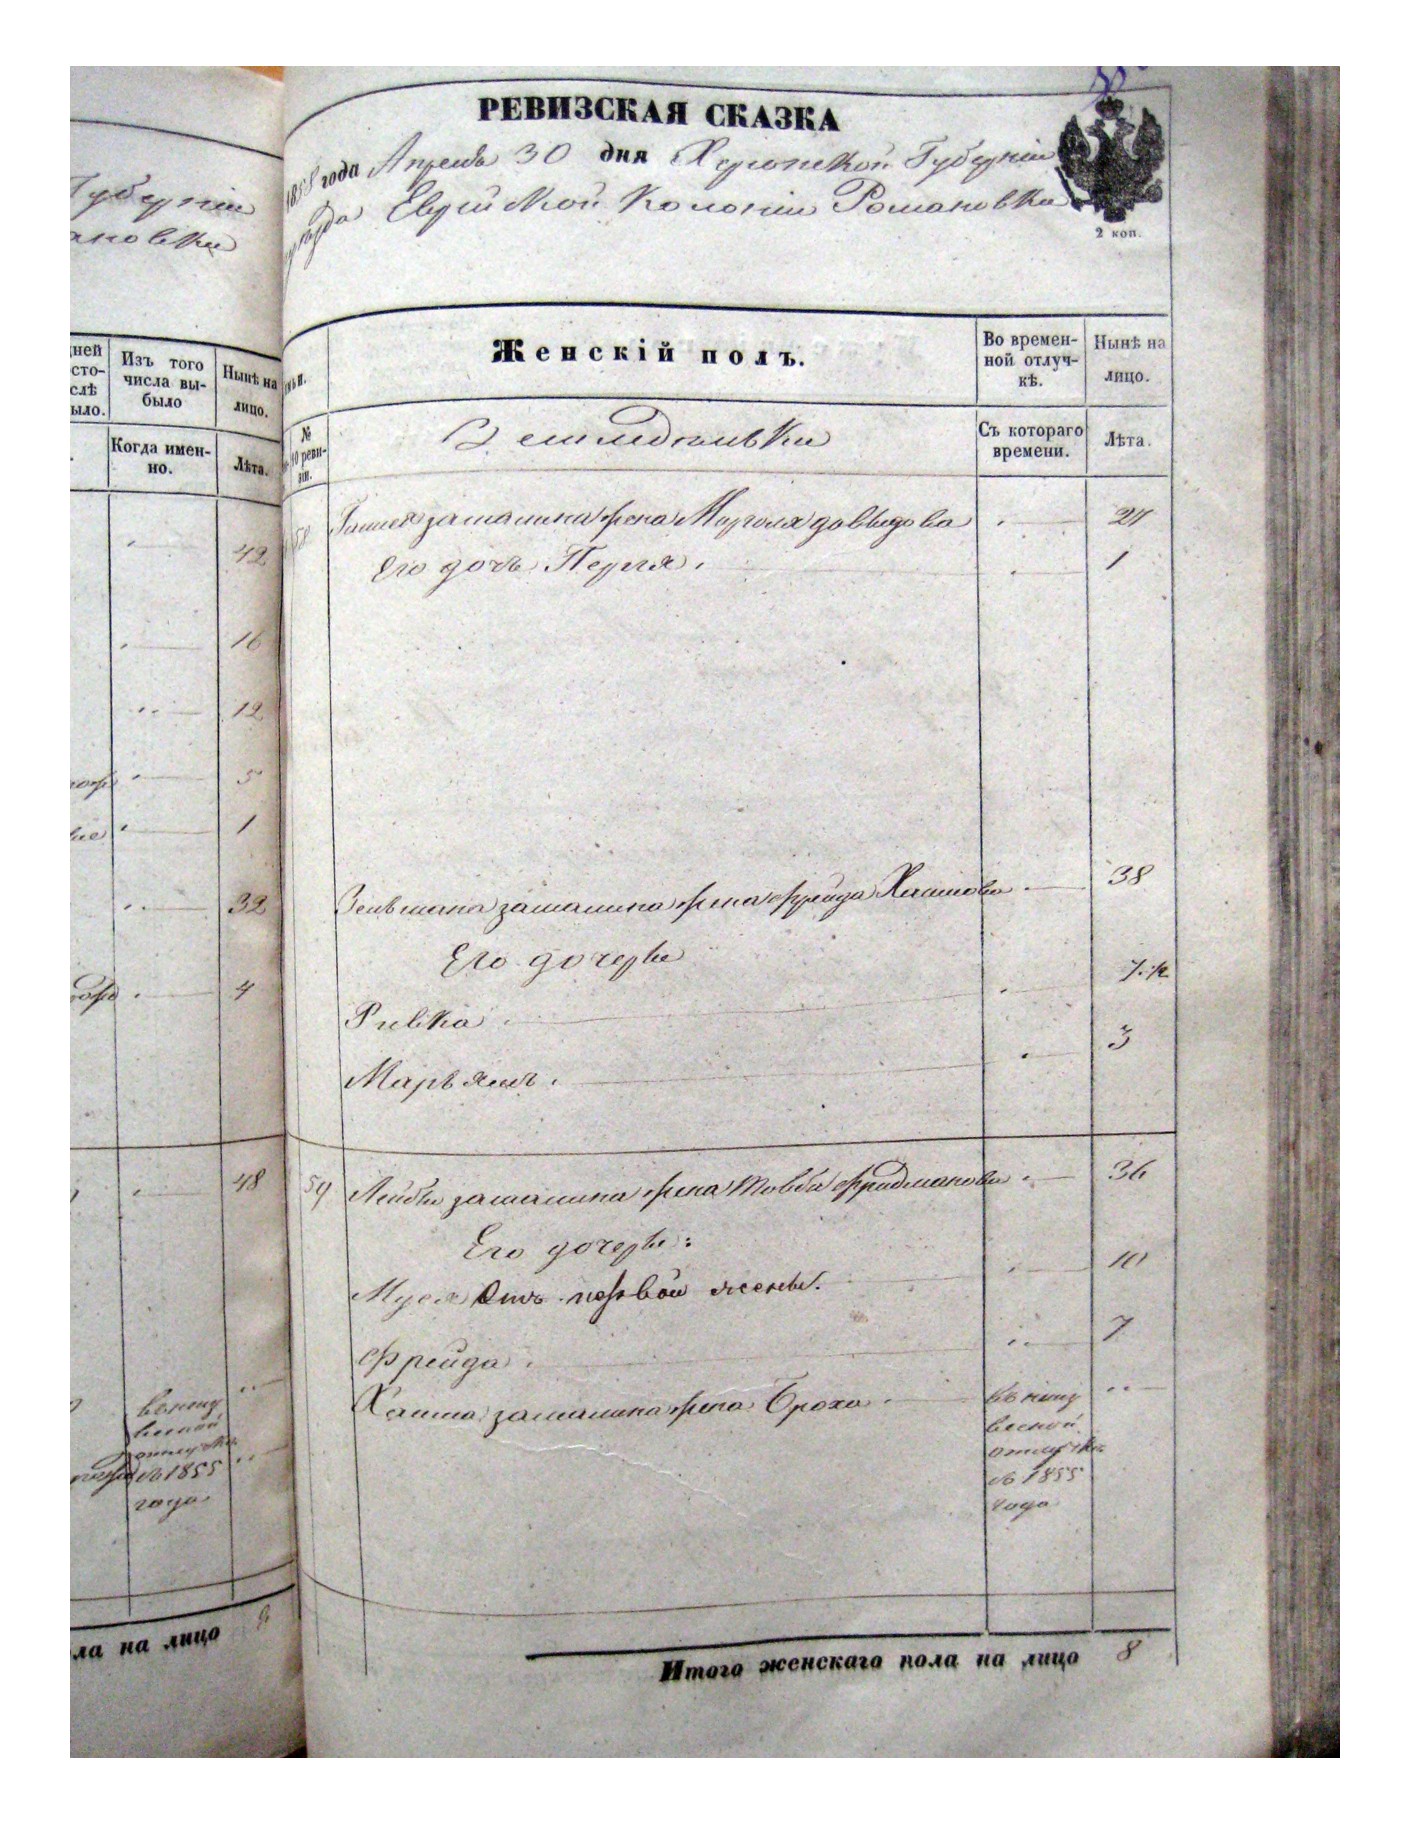 Губернiи
ановки
дней
сто-
слѣ
было.
Изъ того
числа вы-
было
Нынѣ на
лицо.
Когда имен-
но.
Лѣта.
42
16
12
5
1
32
4
48
въ неиз
вестной
отлучке
съ 1855
года
ла на лицо
РЕВИЗСКАЯ СКАЗКА
1858 года Апреля 30 дня Херсонской Губернiи
уѣзда Еврейской Колонiи Романовки
2 коп.
Женскiй полъ.
Во времен-
ной отлуч-
кѣ.
Нынѣ на
лицо.
№
10 реви-
зiи.
Земледельцы
Съ котораго
времени.
Лѣта.
58 жена Давыдова 24
Его дочь Перля. 1
жена Фрейда Хаимова 38
Его дочери
Ривка 7
Марьямъ. 3
59 Лейбы жена Товба Фридманова 36
Его дочери:
Муся Отъ первой жены. 10
Фрейда 7
жена Броха
въ неиз
вестной
отлучке
съ 1855
года
Итого женскаго пола на лицо 8